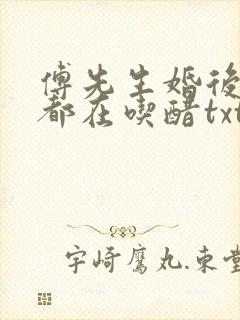 傅先生婚後
都在喫醋txt
宇崎鷹丸.束堂